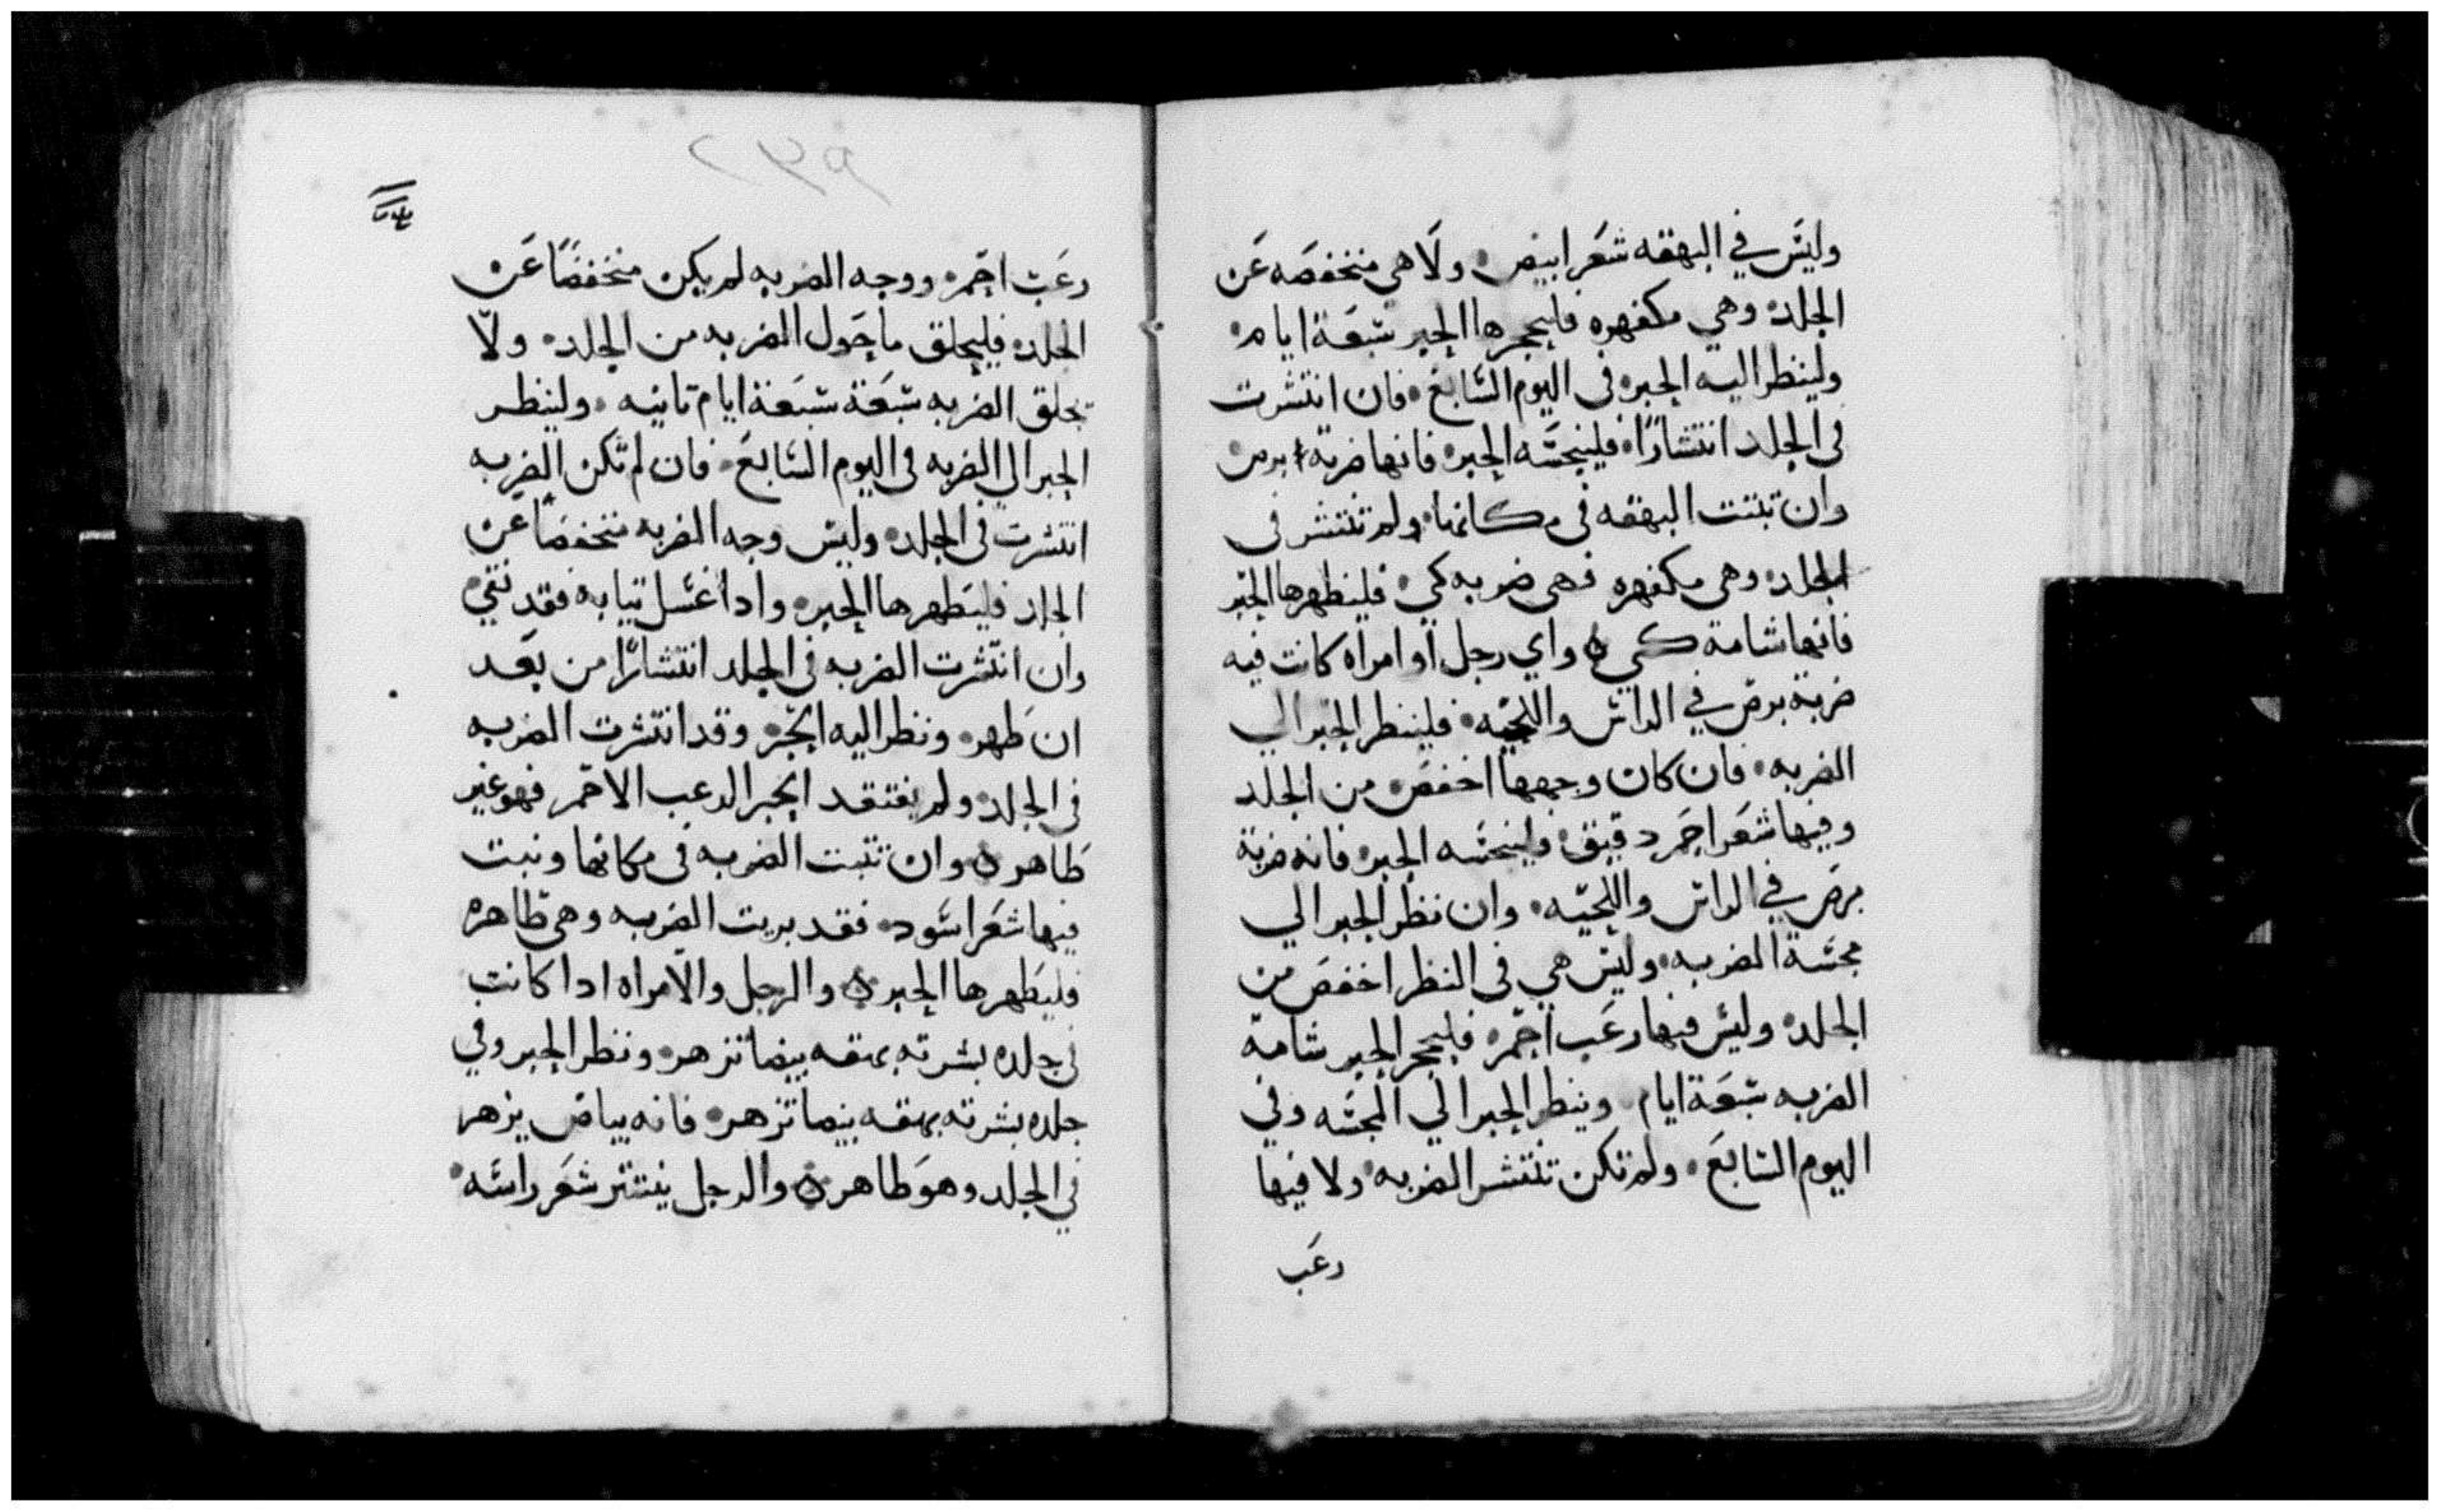 وليس في البهقه شعر ابيض ولا هي منخفصه عن
الجلد وهي مكفهره فليحجرها الحبر سبعة ايام
ولينظر اليه الحبر فى اليوم السابع فان انتشرت
فى الجلد انتشارًا فلينجسه الحبر فانها ضربة برص
وان تبتت البهقه فى مكانها ولم تنتشر فى
الجلد وهى مكفهره فهى ضربه كي فليطهرها الحبر
فانها شامة كي واي رجل او امراه كانت فيه
ضربة برص في الراس واللحيه فلينظر الحبر الي
الضربه فان كان وجهها اخفض من الجلد
وفيها شعر احمر دقيق فلينجسه الحبر فانه ضربة
برص في الراس واللحيه وان نظر الحبر الي
مجسة الضربه وليس هي فى النظر اخفض من
الجلد وليس فيها رعب احمر فليحجر الحبر شامة
الضربه سبعة ايام وينظر الحبر الي المجسه وفي
اليوم السابع ولم تكن تنتشر الضربه ولا فيها
رعب
٢٣٩
رعب احمر ووجه الضربه لم يكن منخفضًا عن
الجلد فليحلق ما حول الضربه من الجلد ولا
تحلق الضربه سبعة سبعة ايام تانيه ولينظر
الحبر الي الضربه فى اليوم السابع فان لم تكن الضربه
انتشرت فى الجلد وليس وجه الضربه منخفضًا عن
الجلد فليطهرها الحبر وادا غسل تيابه فقد نقي
وان انتشرت الضربه فى الجلد انتشارًا من بعد
ان طهر ونظر اليه الحبر وقد انتشرت الضربه
فى الجلد ولم يفتقد الحبر الرعب الاحمر فهو غير
طاهر وان تتبت الضربه فى مكانها ونبت
فيها شعر اسود فقد بريت الضربه وهى طاهره
فليطهرها الحبر والرجل والامراه ادا كانت
فى جلده بشرته بهقه بيضا تزهر ونظر الحبر وفي
جلده بشرته بهقه بيضا تزهر فانه بياض يزهر
في الجلد وهو طاهر والرجل ينتتر شعر راسه